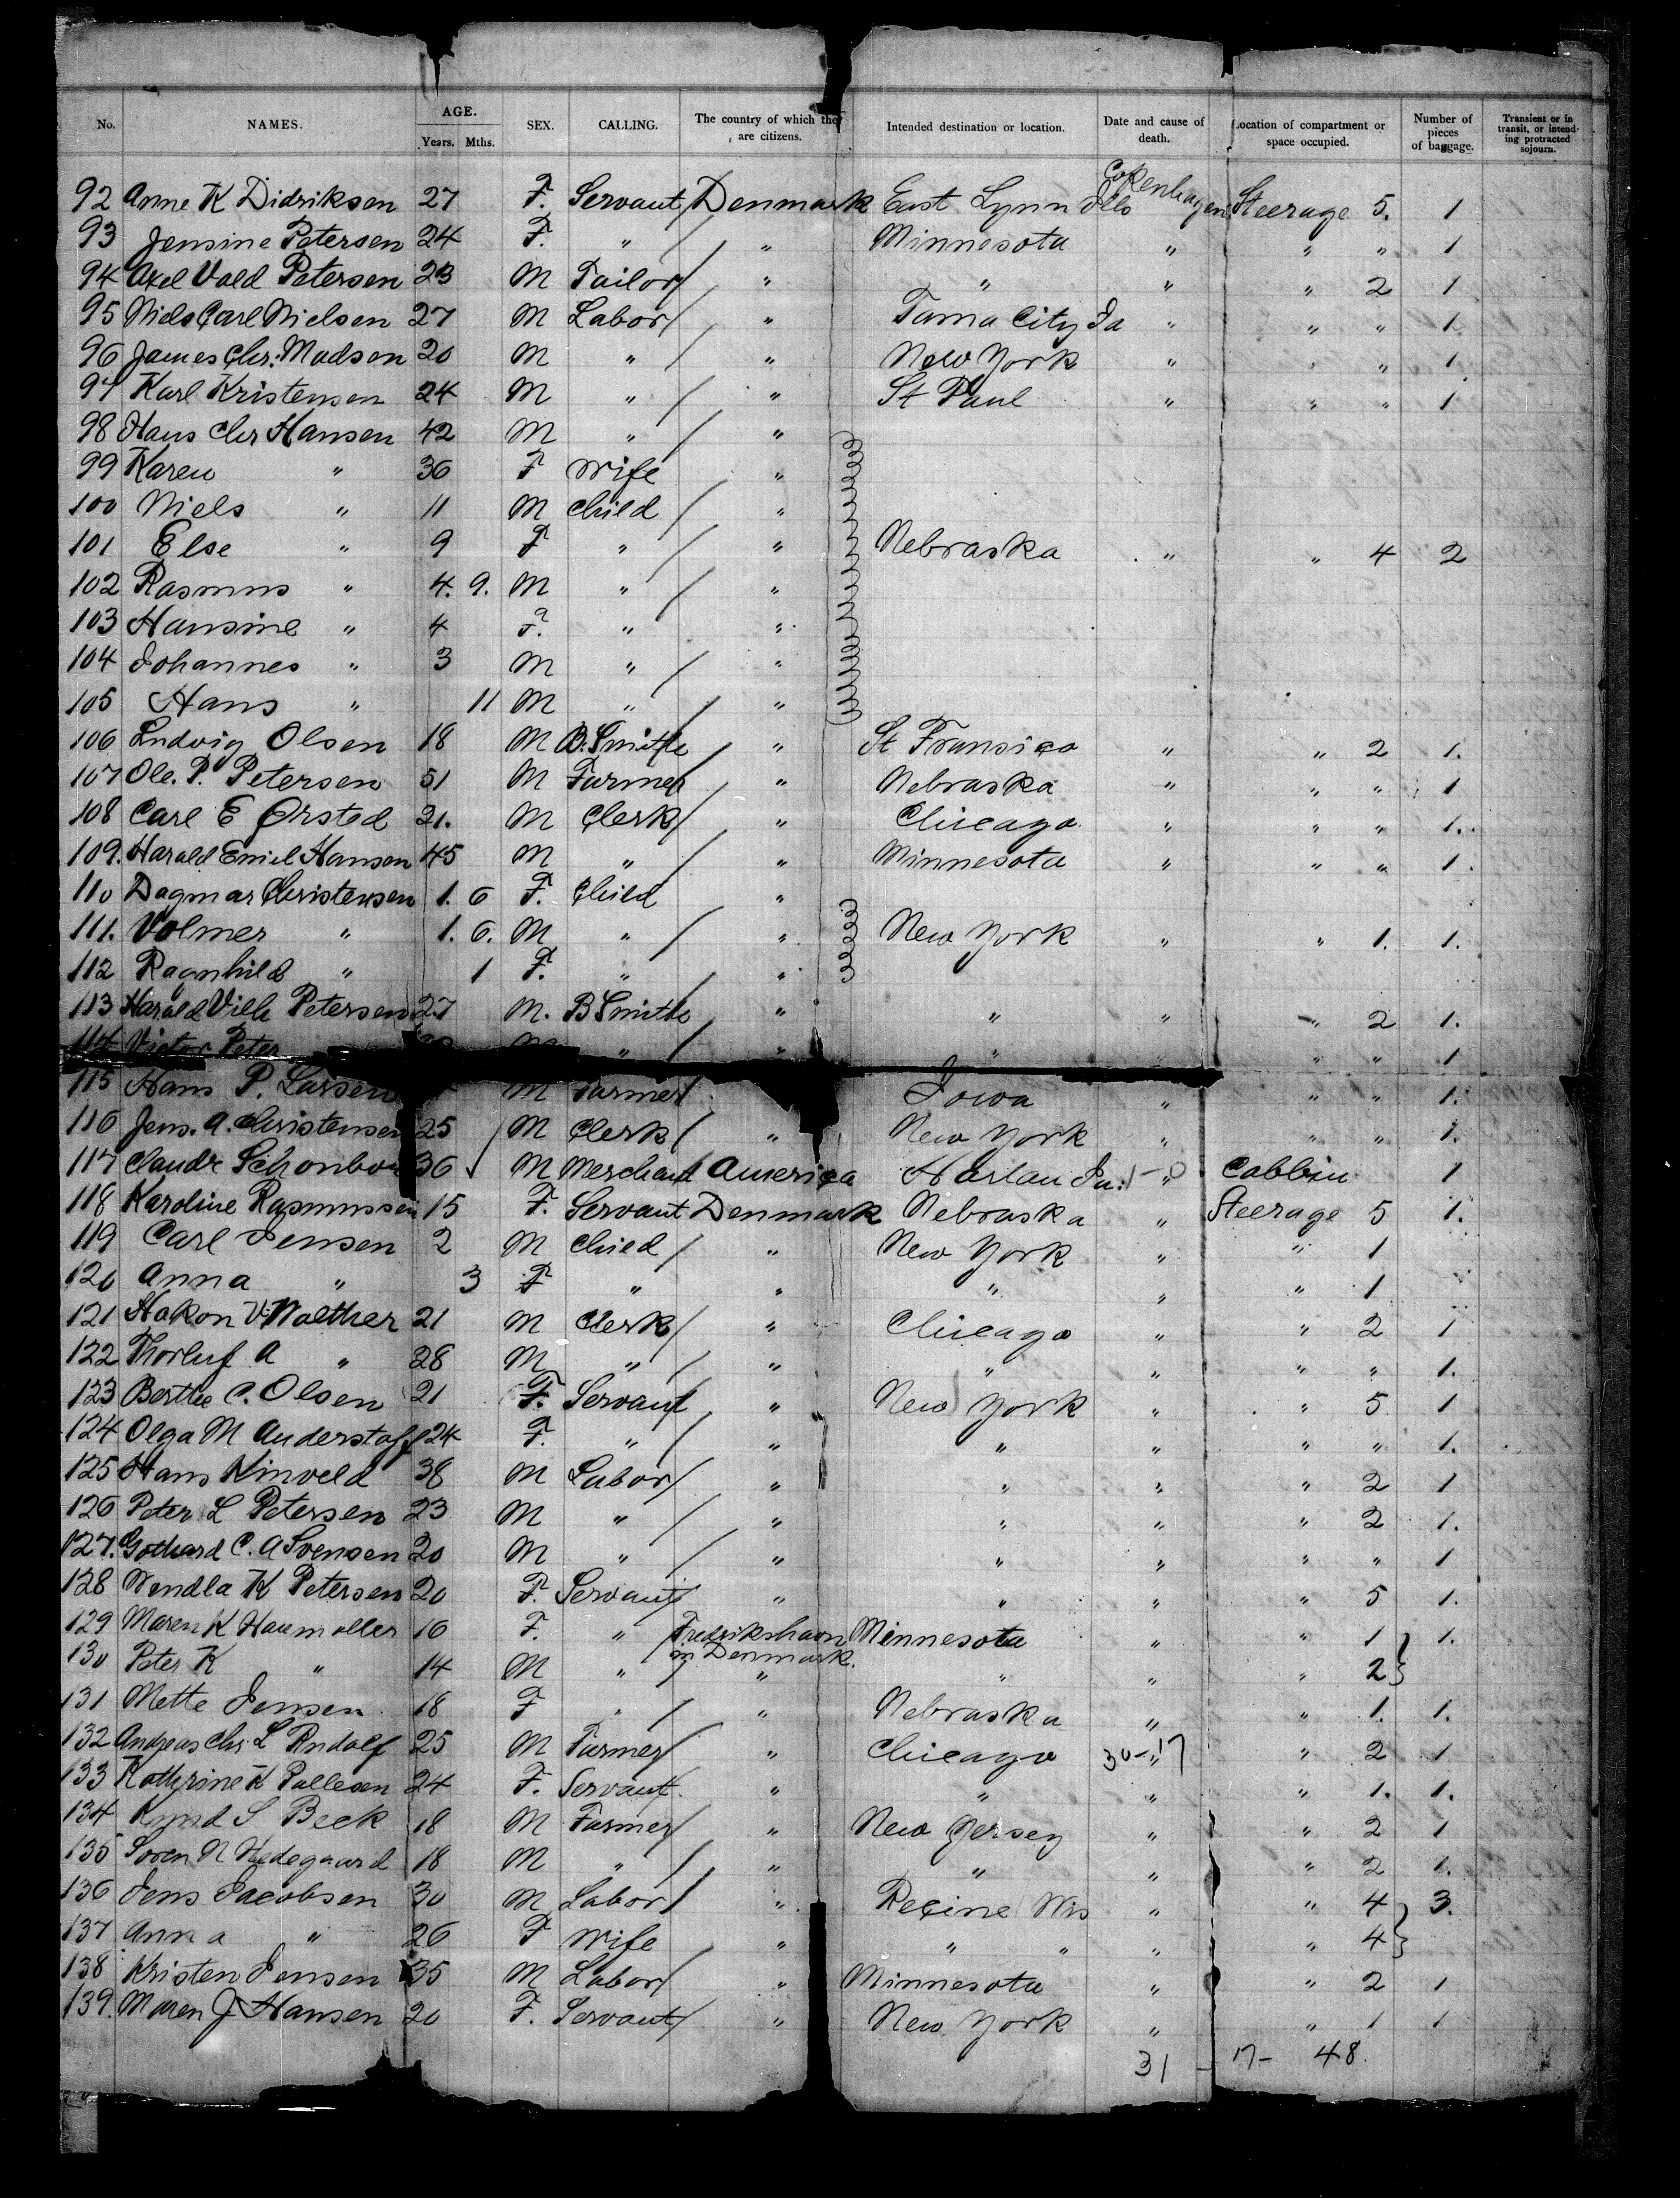 No. NAMES. AGE. Years. Mths. SEX. CALLING. The country of which they are citizens. Intended destination or location. Date and cause of death. Location of compartment or space occupied. Number of pieces of baggage. Transient or in transit, or intending protracted sojourn.
92 Anne K Didriksen 27 F. Servant Denmark East Lynn Ills Copenhagen Steerage 5. 1
93 Jensine Petersen 24 F. " " Minnesota " " " 1
94 Axel Vald Petersen 23 M Tailor " " " " 2 1
95 Niels Carl Nielsen 27 M Labor " Tama City Ia " " " 1
96 James Chr. Madsen 20 M " " New York " " " 1
97 Karl Kristensen 24 M " " St Paul " " " 1
98 Hans Chr Hansen 42 M " "
99 Karen " 36 F Wife "
100 Niels " 11 M Child "
101 Else " 9 F " " Nebraska " " 4 2
102 Rasmus " 4. 9. M " "
103 Hansine " 4 F. " "
104 Johannes " 3 M " "
105 Hans " 11 M " "
106 Ludvig Olsen 18 M B. Smith " St Fransico " " 2 1.
107 Ole. P. Petersen 51 M Farmer " Nebraska " " " 1
108 Carl E Ørsted 21. M Clerk " Chicago " " " 1.
109. Harald Emil Hansen 45 M " " Minnesota " " " 1.
110 Dagmar Christensen 1. 6 F. Child "
111. Volmer " 1. 6. M " " New York " " 1. 1.
112 Ragnhild " 1 F. " "
113 Harald Vilh Petersen 27 M. B Smith " " " " 2 1.
114 Victor Peter " " " " " 1
115 Hans P. Larsen M Farmer Iowa " " " 1.
116 Jens. A. Christensen 25 M Clerk " New York " " " 1.
117 Claude 36 M Merchant America Harlan " Cabbin 1
118 Karoline Rasmussen 15 F. Servant Denmark Nebraska " Steerage 5 1.
119 Carl Jensen 2 M Child " New York " " 1
120 Anna " 3 F " " " " " 1
121 Hakon V. Walther 21 M Clerk " Chicago " " 2 1
122 Thorluf A " 28 M " " " " " " 1.
123 Berthe C. Olsen 21 F. Servant " New York " " 5 1
124 Olga M 24 F. " " " " " " 1.
125 Hans 38 M Labor " " " " 2 1
126 Peter L Petersen 23 M " " " " " 2 1.
127. Gothard C. A Svensen 20 M " " " " " " 1
128 Vendla K Petersen 20 F. Servant " " " " 5 1.
129 Maren K Haumøller 16 F. " Fredrikshavn in Denmark. Minnesota " " 1 1.
130 Peter K " 14 M " " " " " 2
131 Mette Jensen 18 F " " Nebraska " " 1. 1.
132 Andreas Chr. L Rudolf 25 M Farmer " Chicago 30-17 " " 2 1
133 Kathrine K Pallesen 24 F. Servant " " " " 1. 1.
134 Knud S Beck 18 M Farmer " New Jersey " " 2 1
135 Soren N Hedegaard 18 M " " " " " 2 1.
136 Jens Jacobsen 30 M Labor " Recine Wis " " 4 3.
137 Anna " 26 F Wife " " " " " 4
138 Kristen Jensen 35 M Labor " Minnesota " " 2 1
139. Maren J Hansen 20 F. Servant " New York " " 1 1
31 - 17- 48.